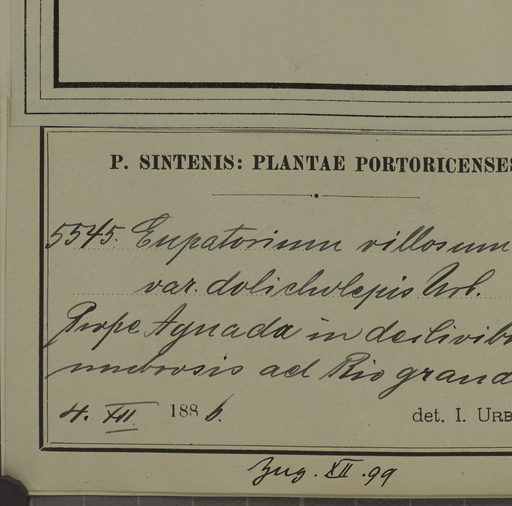 P. SINTENIS: PLANTAE PORTORICENSES
5545. Eupatorium villosum
var. dolicholepis Urb.
Prope Aguada in declivibu
umbrosis ad Rio grand
4. XII 1886. det. I. URB
Zug. XII. 99